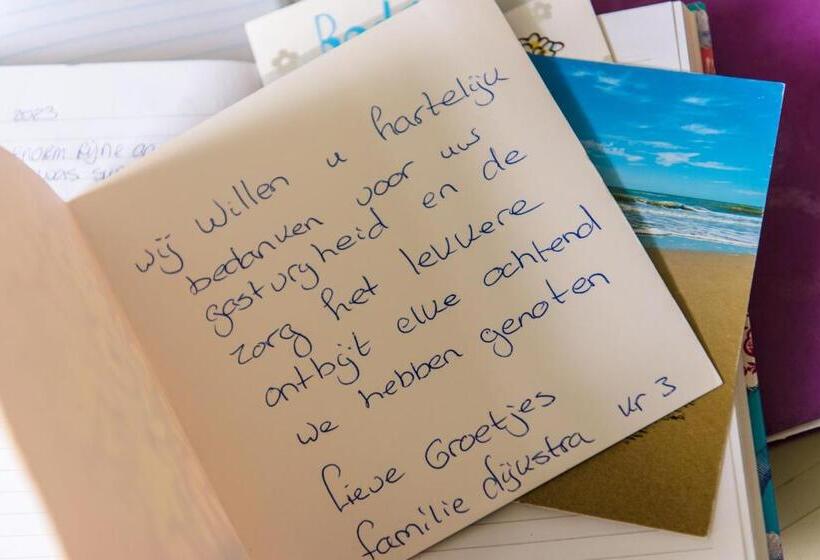 2023
wij willen u hartelijk
bedanken voor uw
gasturyheid en de
zorg het lekkere
ontbijt elke ochtend
we hebben genoten
Lieve Groetjes
familie dijkstra kr 3